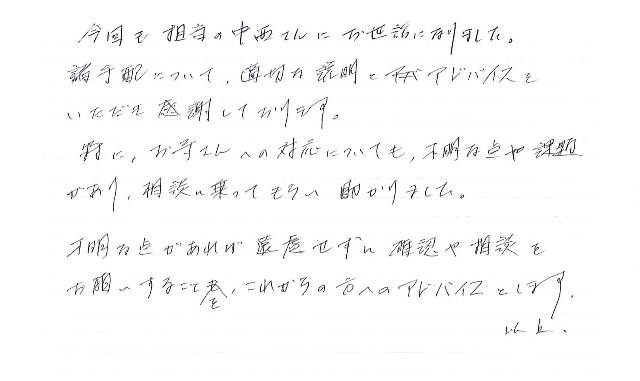 今回も担当の中西さんにお世話になりました。
諸手配について、適切な説明とアドバイスを
いただき感謝しております。
特に、お寺さんへの対応についても、不明な点や課題
があり、相談に乗ってもらい助かりました。
不明な点があれば遠慮せずに確認や相談を
お願いすること を、これからの方へのアドバイスとします。
以上。